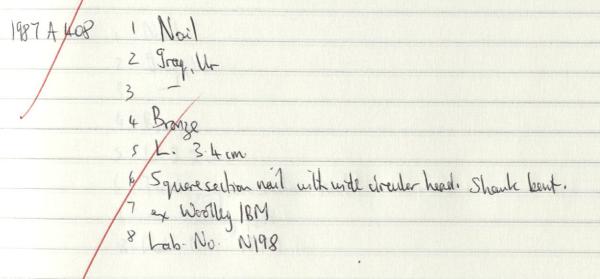 1987 A 408 1 Nail
2 Iraq, Ur
3 —
4 Bronze
5 L. 3.4 cm
6 Square section nail with wide circular head. Shank bent.
7 ex Woolley / BM
8 Lab. No. N198